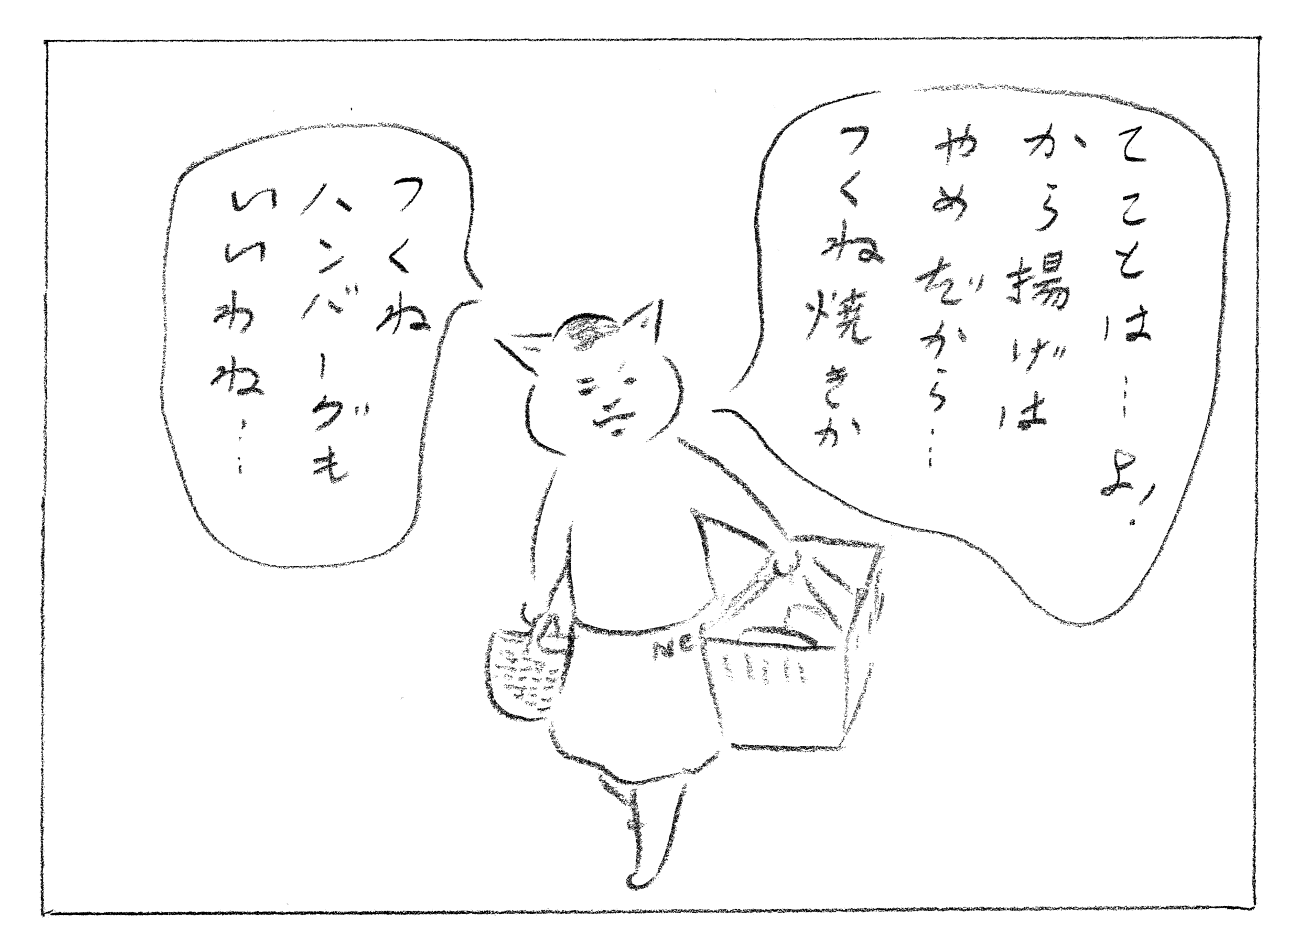 てことは…よ!
から揚げは
やめだから…
つくね焼きか
つくね
ハンバーグも
いいわね…
NE